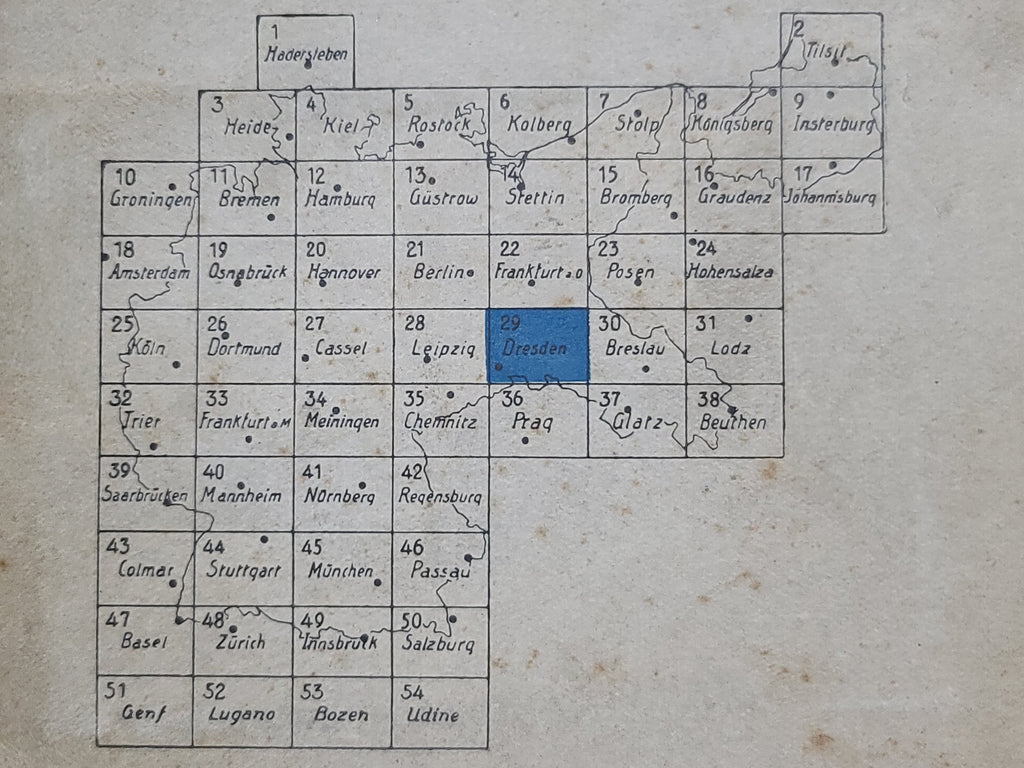 1
Hadersleben
2
Tilsit
3
Heide
4
Kiel
5
Rostock
6
Kolberg
7
Stolp
8
Königsberg
9
Insterburg
10
Groningen
11
Bremen
12
Hamburg
13
Güstrow
14
Stettin
15
Bromberg
16
Graudenz
17
Johannisburg
18
Amsterdam
19
Osnabrück
20
Hannover
21
Berlin
22
Frankfurt a.O
23
Posen
24
Hohensalza
25
Köln
26
Dortmund
27
Cassel
28
Leipzig
29
Dresden
30
Breslau
31
Lodz
32
Trier
33
Frankfurt a.M
34
Meiningen
35
Chemnitz
36
Prag
37
Glatz
38
Beuthen
39
Saarbrücken
40
Mannheim
41
Nürnberg
42
Regensburg
43
Colmar
44
Stuttgart
45
München
46
Passau
47
Basel
48
Zürich
49
Innsbruck
50
Salzburg
51
Genf
52
Lugano
53
Bozen
54
Udine